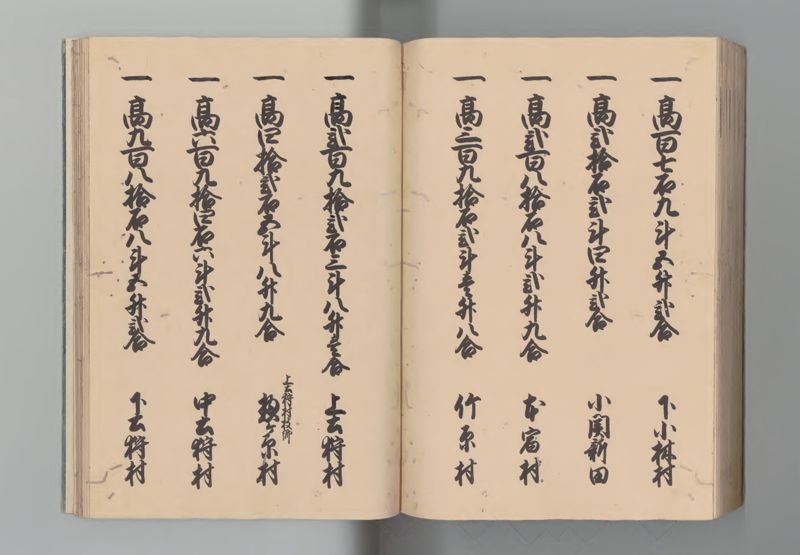 一 高百七石九斗五升弐合 下小林村
一 高弐拾石弐斗四升弐合 小関新田
一 高弐百八拾石八斗弐升九合 本宿村
一 高三百九拾石弐斗壱升八合 竹原村
一 高弐百九拾弐石三斗八升壱合 上云狩村
一 高四拾弐石五斗八升九合 上云狩村枝郷 椴ケ原村
一 高六百九拾四石六斗弐升九合 中云狩村
一 高九百八拾石八斗五升弐合 下云狩村